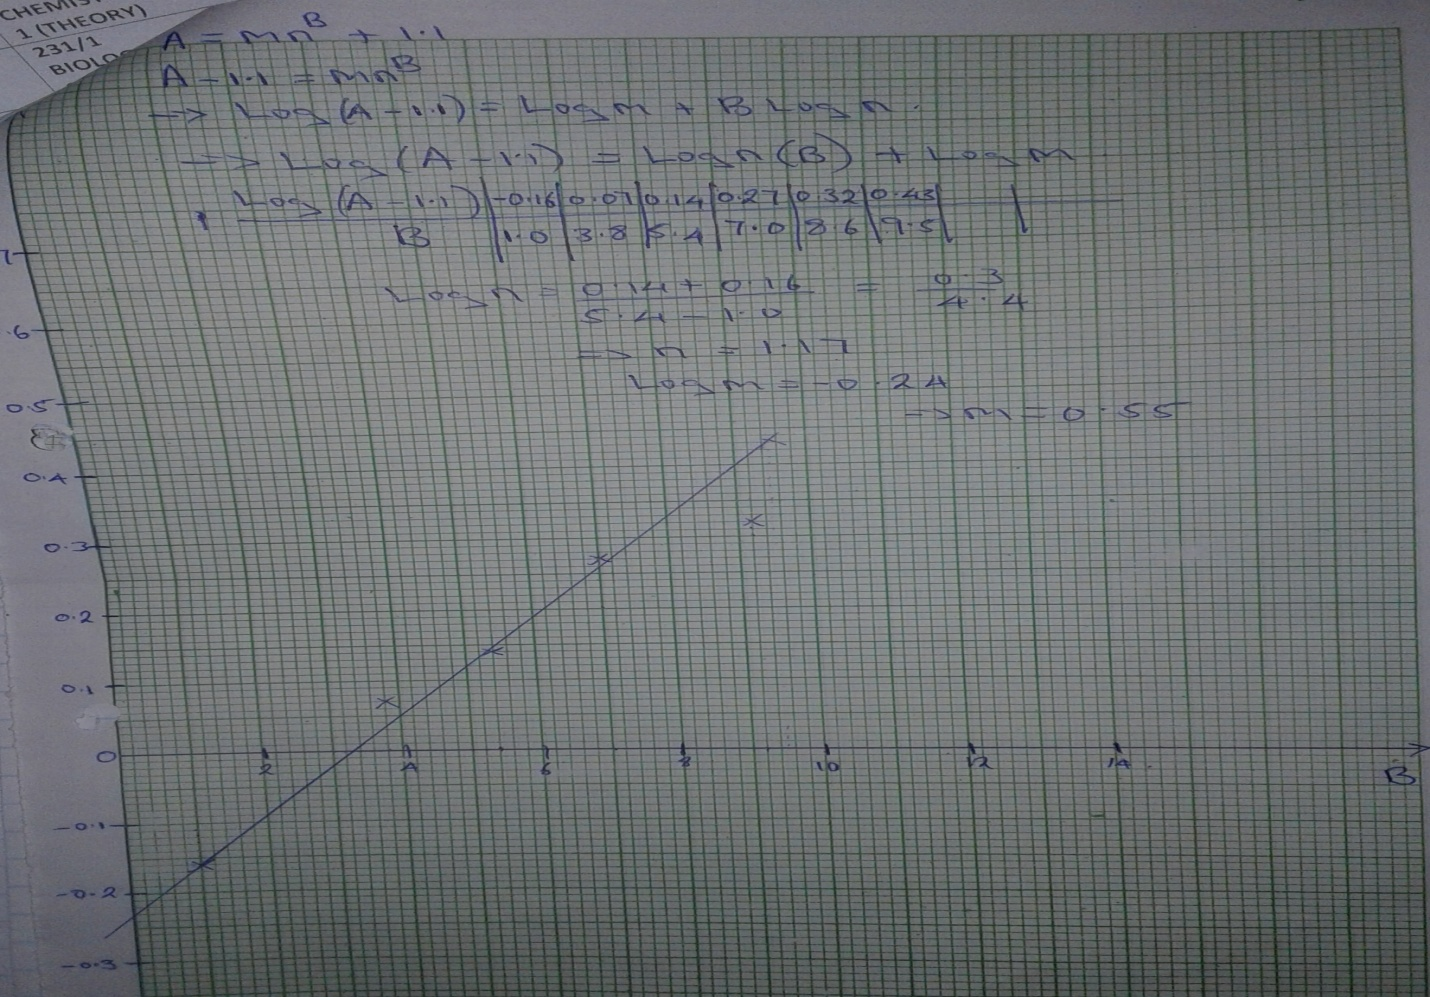 CHEMIS
1 (THEORY)
231/1
BIOLO
A = mn^B + 1.1
A - 1.1 = mn^B
-> Log(A - 1.1) = Log m + B Log n.
-> Log(A - 1.1) = Log n(B) + Log m
Log(A - 1.1) | -0.16 | 0.07 | 0.14 | 0.27 | 0.32 | 0.43 |
B | 1.0 | 3.8 | 5.4 | 7.0 | 8.6 | 9.5 |
Log n = (0.14 + 0.16)/(5.4 - 1.0) = 0.3/4.4
-> n = 1.17
Log m = -0.24
-> m = 0.55
.6
0.5
0.4
0.3
0.2
0.1
0 2 4 6 8 10 12 14 B
-0.1
-0.2
-0.3